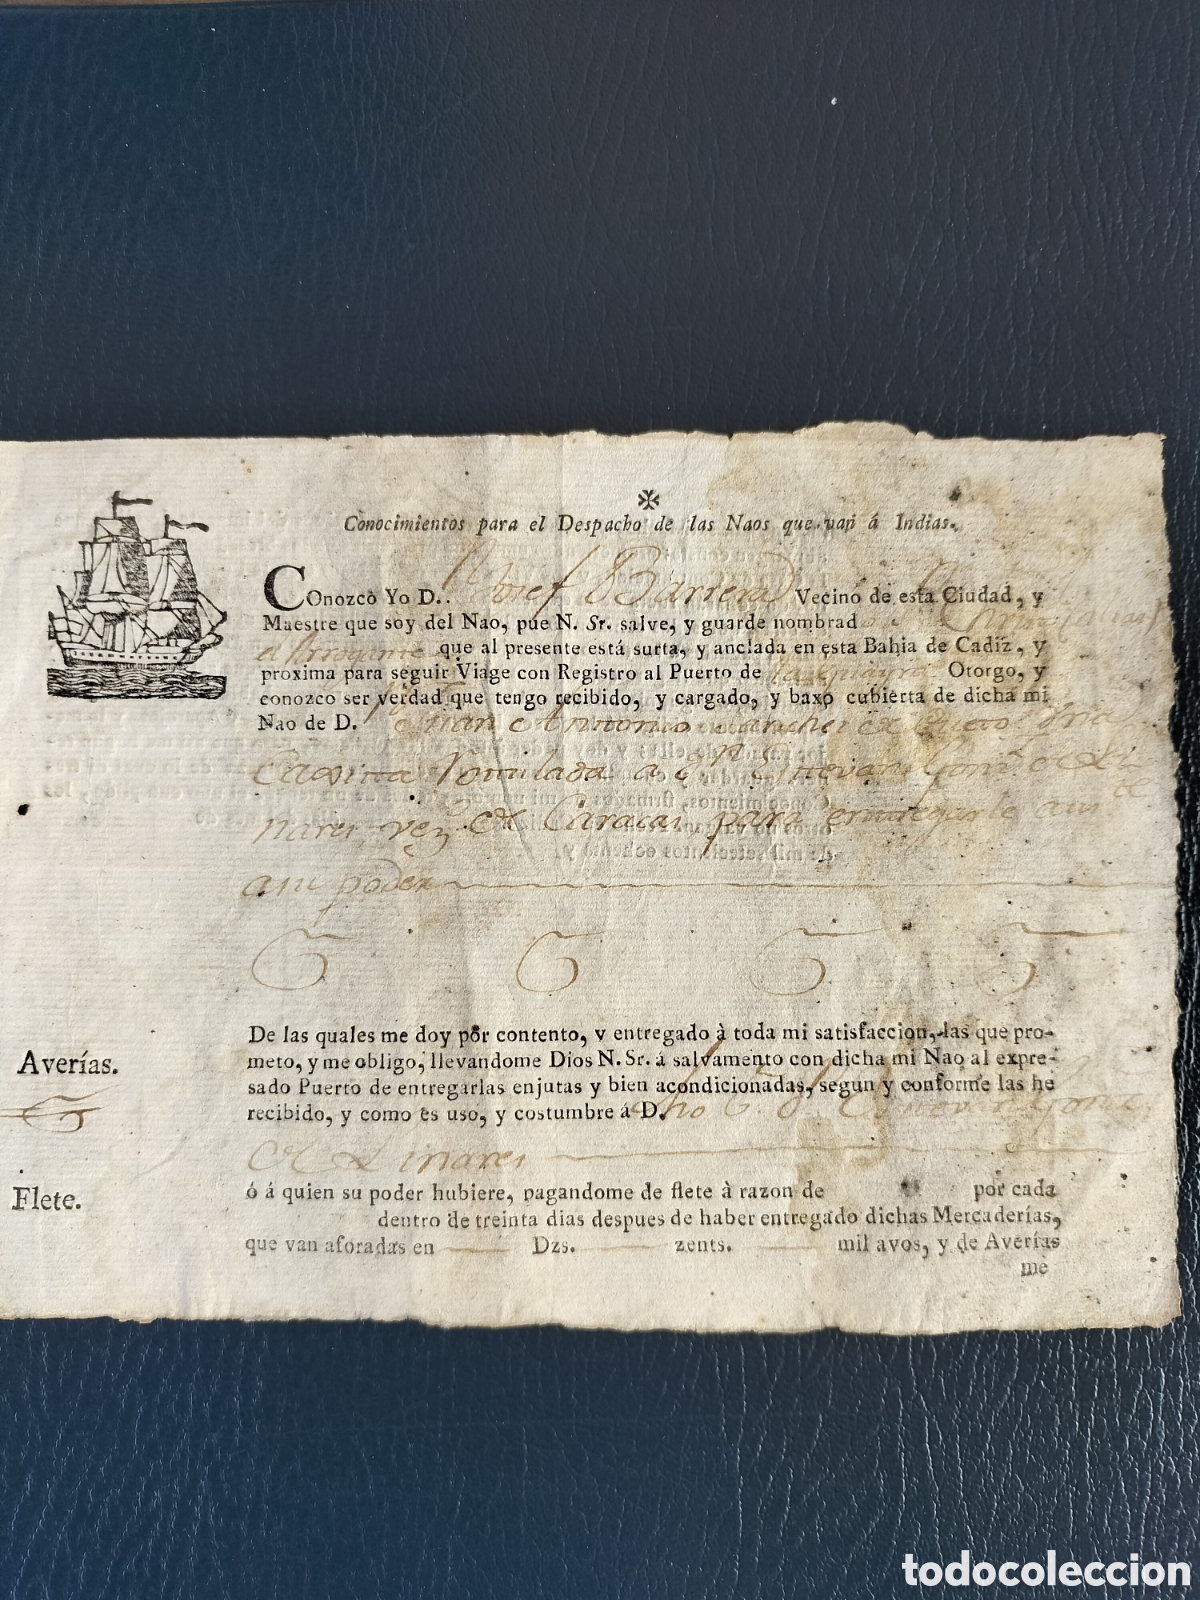 Conocimientos para el Despacho de las Naos que van á Indias.
COnozco Yo D. Josef Barrera Vecino de esta Ciudad, y
Maestre que soy del Nao, pue N. Sr. salve, y guarde nombrad
el Arrogante que al presente está surta, y anclada en esta Bahia de Cadiz, y
proxima para seguir Viage con Registro al Puerto de la Guayra Otorgo, y
conozco ser verdad que tengo recibido, y cargado, y baxo cubierta de dicha mi
Nao de D. Juan Antonio Sanchez de Cueto
Caxitta Rotulada a
nares vez.º de Caracas para entregarle
a su poder
De las quales me doy por contento, v entregado à toda mi satisfaccion, las que pro-
meto, y me obligo, llevandome Dios N. Sr. á salvamento con dicha mi Nao al expre-
sado Puerto de entregarlas enjutas y bien acondicionadas, segun y conforme las he
recibido, y como es uso, y costumbre á D. dho
de Linares
ó á quien su poder hubiere, pagandome de flete à razon de por cada
dentro de treinta dias despues de haber entregado dichas Mercaderías,
que van aforadas en Dzs. zents. mil avos, y de Averías
me
Averías.
Flete.
todocoleccion